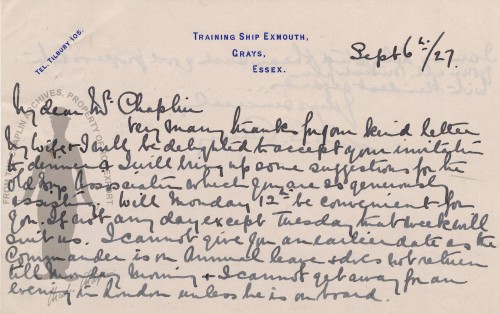 TEL. TILBURY 105.
TRAINING SHIP EXMOUTH,
GRAYS,
ESSEX.
Sept 6th/27.
My dear Mr Chaplin
Very many thanks for your kind letter
My wife & I will be delighted to accept your invitation
to dinner & I will bring up some suggestions for the
Old Boys Association which you are so generously
assisting. Will Monday 12th be convenient for
you. If not any day except Tuesday that week will
suit us. I cannot give you an earlier date as the
Commander is on annual leave & does not return
till Monday morning & I cannot get away for an
evening in London unless he is on board.
FROM THE CHAPLIN ARCHIVES, PROPERTY OF